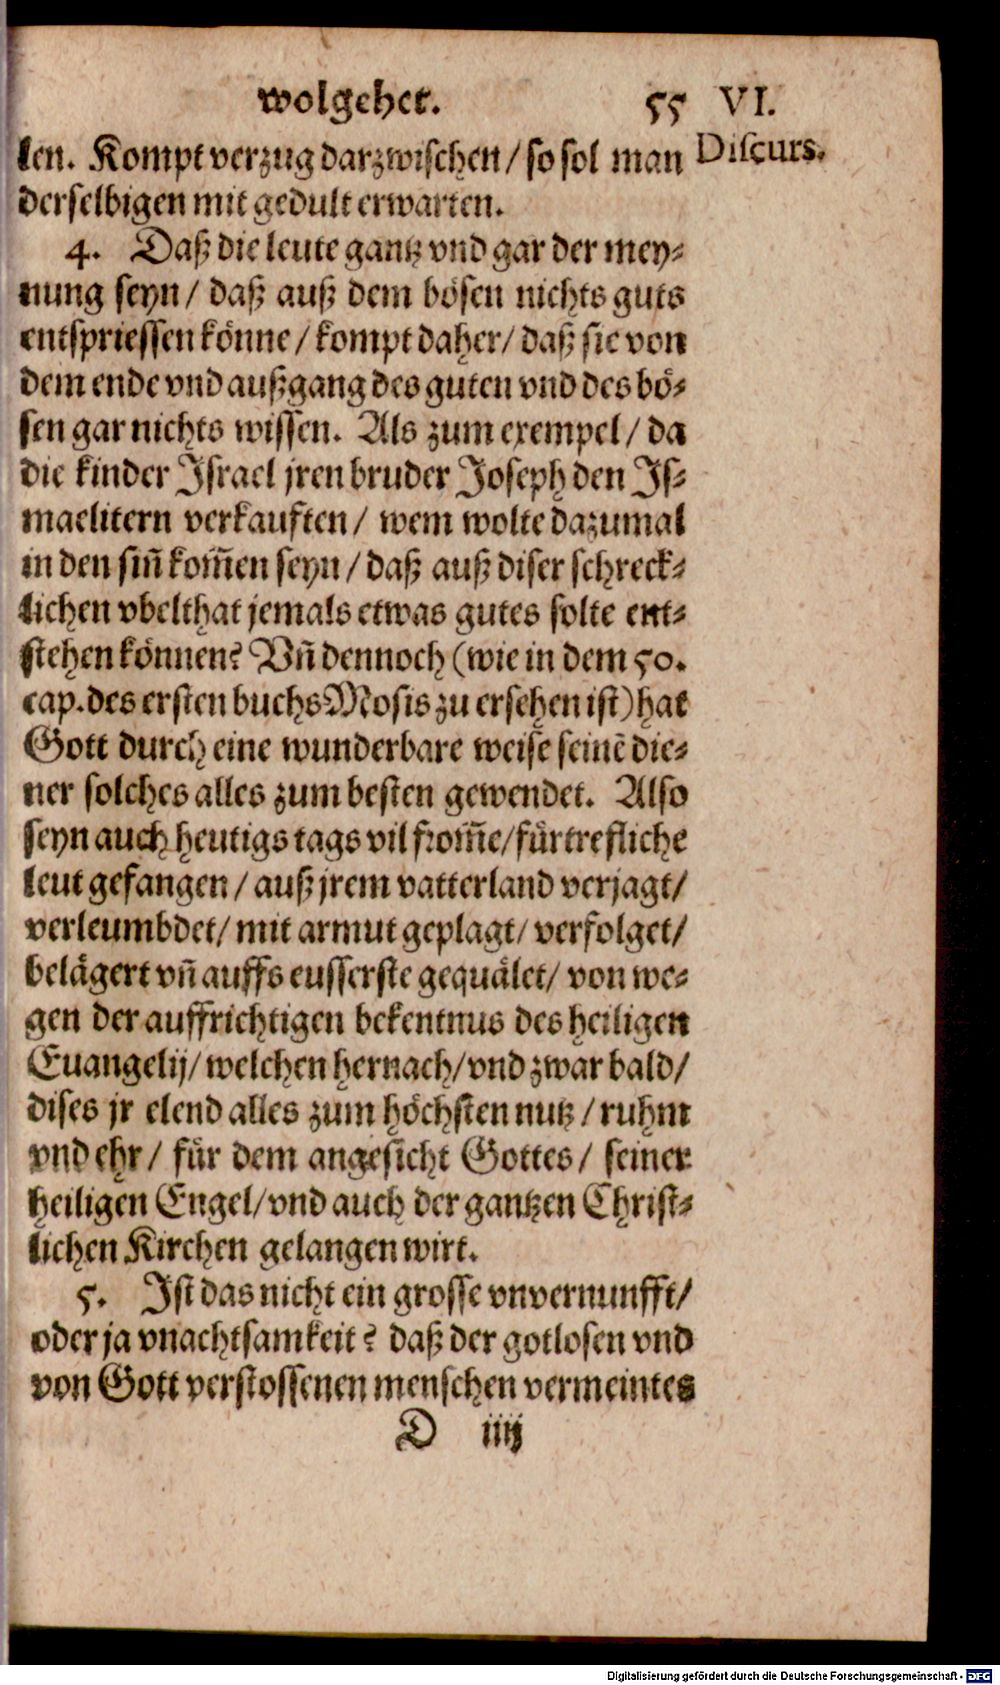 wolgehet. 55 VI.
len. Kompt verzug darzwischen / so sol man Discurs.
derselbigen mit gedult erwarten.
4. Daß die leute gantz vnd gar der mey-
nung seyn / daß auß dem bösen nichts guts
entspriessen könne / kompt daher / daß sie von
dem ende vnd außgang des guten vnd des bö-
sen gar nichts wissen. Als zum exempel / da
die kinder Israel jren bruder Joseph den Is-
maelitern verkauften / wem wolte dazumal
in den sin̄ kom̄en seyn / daß auß diser schreck-
lichen vbelthat jemals etwas gutes solte ent-
stehen können? Vn̄ dennoch (wie in dem 50.
cap. des ersten buchs Mosis zu ersehen ist) hat
Gott durch eine wunderbare weise seinē die-
ner solches alles zum besten gewendet. Also
seyn auch heutigs tags vil from̄e / fürtrefliche
leut gefangen / auß jrem vatterland verjagt /
verleumbdet / mit armut geplagt / verfolget /
belägert vn̄ auffs eusserste gequälet / von we-
gen der auffrichtigen bekentnus des heiligen
Euangelij / welchen hernach / vnd zwar bald /
dises jr elend alles zum höchsten nutz / ruhm
vnd ehr / für dem angesicht Gottes / seiner
heiligen Engel / vnd auch der gantzen Christ-
lichen Kirchen gelangen wirt.
5. Ist das nicht ein grosse vnvernunfft /
oder ja vnachtsamkeit? daß der gotlosen vnd
von Gott verstossenen menschen vermeintes
D iiij
Digitalisierung gefördert durch die Deutsche Forschungsgemeinschaft - DFG